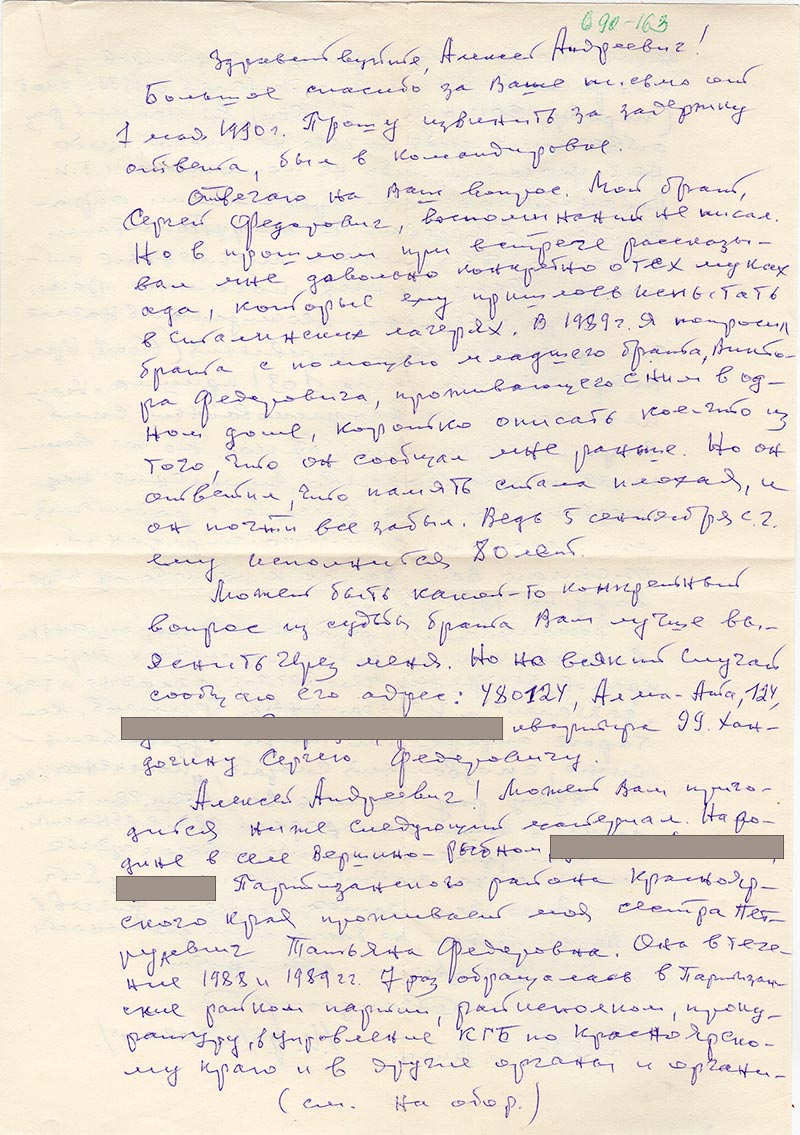 090-163
Здравствуйте, Алексей Андреевич!
Большое спасибо за Ваше письмо от
7 мая 1990г. Прошу извинить за задержку
ответа, был в командировке.
Отвечаю на Ваш вопрос. Мой брат,
Сергей Федорович, воспоминаний не писал.
Но в прошлом при встрече рассказы-
вал мне довольно конкретно о тех муках
ада, которые ему пришлось испытать
в сталинских лагерях. В 1989г. я попросил
брата с помощью младшего брата, Викто-
ра Федоровича, проживающего с ним в од-
ном доме, коротко описать кое-что из
того, что он сообщал мне раньше. Но он
ответил, что память стала плохая, и
он почти все забыл. Ведь 5 сентября с.г.
ему исполнится 80 лет.
Может быть какой-то конкретный
вопрос из судьбы брата Вам лучше вы-
яснить через меня. Но на всякий случай
сообщаю его адрес: 480124, Алма-Ата, 124,
квартира 99. Хан-
дочину Сергею Федоровичу.
Алексей Андреевич! Может Вам приго-
дится ниже следующий материал. На ро-
дине в селе Вершино-Рыбном,
Партизанского района Краснояр-
ского края проживает моя сестра Пет-
рукович Татьяна Федоровна. Она в тече-
ние 1988 и 1989 гг. 7 раз обращалась в Партизан-
ские райком партии, райисполком, проку-
ратуру, в управление КГБ по Красноярско-
му краю и в другие органы и органи-
(см. на обор.)